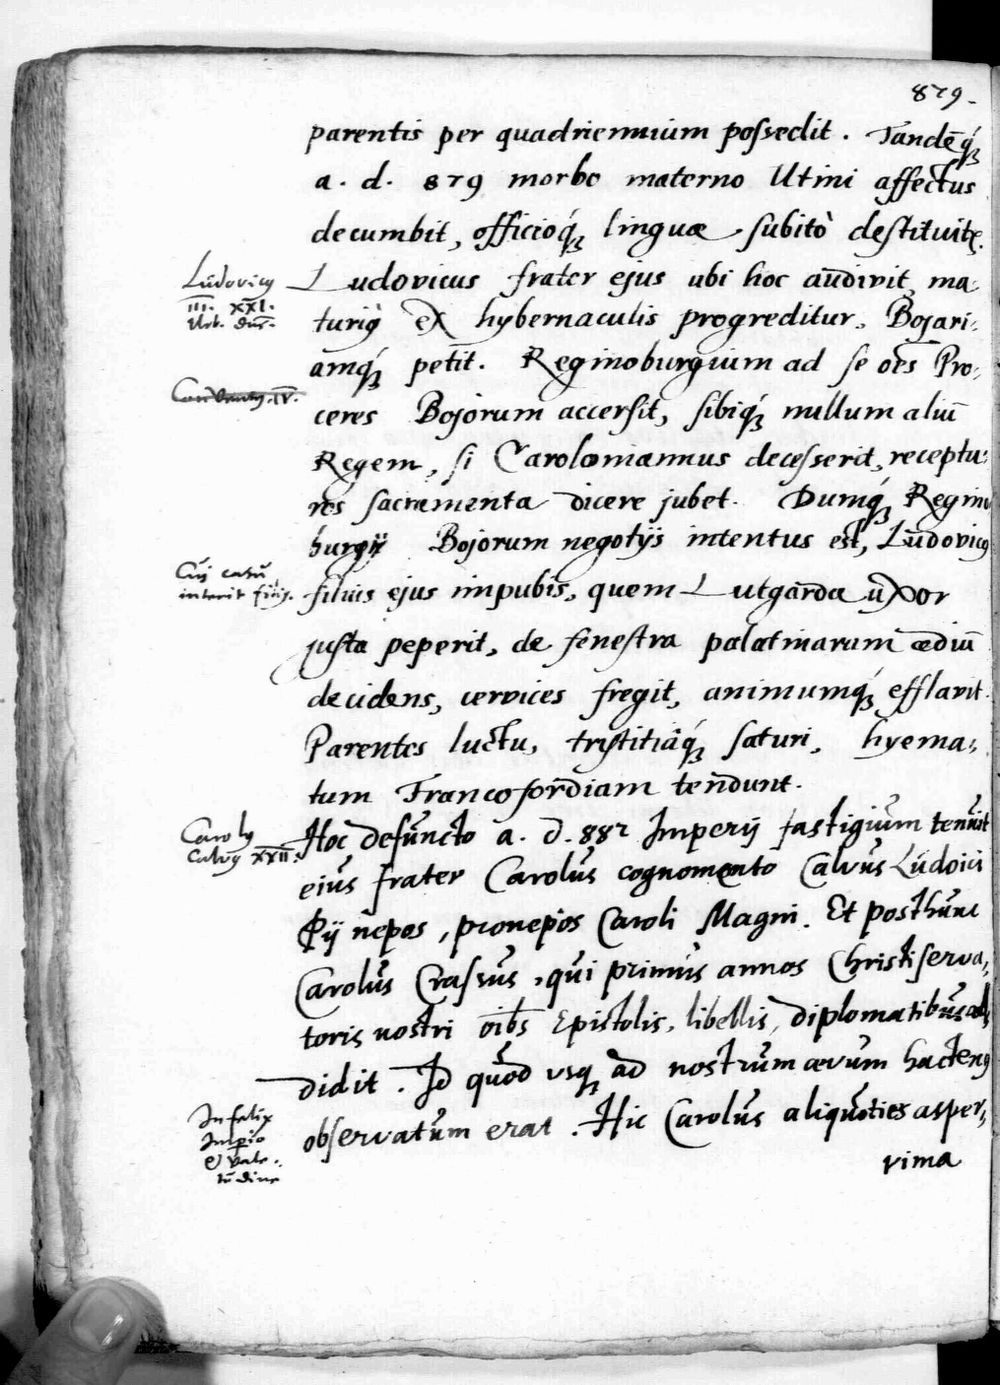 879.
parentis per quadriennium possedit. Tandēq́ꝫ
a. d. 879 morbo materno Utini affectus
decumbit, officioq́ꝫ linguæ subitò destituitr̄.
Ludovicus frater ejus ubi hoc audivit, ma-
turiꝰ ex hybernaculis progreditur, Bojari-
amq́ꝫ petit. Reginoburgium ad se oēs Pro-
ceres Bojorum accersit, sibiq́ꝫ nullum aliū
Regem, si Carolomannus decesserit, receptu-
ros sacramenta dicere jubet. Dumq́ꝫ Regino
burgij Bojorum negotijs intentus est, Ludovicꝰ
filius ejus impubis, quem Lutgarda uxor
justa peperit, de fenestra palatinarum ædiū
decidens, cervices fregit, animumq́ꝫ efflavit.
Parentes luctu, tristitiaq́ꝫ saturi, hyema-
tum Francofordiam tendunt.
Hoc defuncto a. d. 882 Imperij fastigium tenuit
eius frater Carolus cognomento Calvus Ludoici
Pij nepos, pronepos Caroli Magni. Et post hunc
Carolus Crassus, qui primus annos Christi serva-
toris nostri oībs Epistolis, libellis, diplomatibus ad
didit. Id quod usqꝫ ad nostrum ævum hactenꝰ
observatum erat. Hic Carolus aliquoties asper-
rima
Ludovicꝰ
III. XXI.
Conventꝰ. IV.
Cuj casu
interit filiꝰ.
Carolꝰ
Calvꝰ XXII.
Infelix
Impio
& vale-
tudine